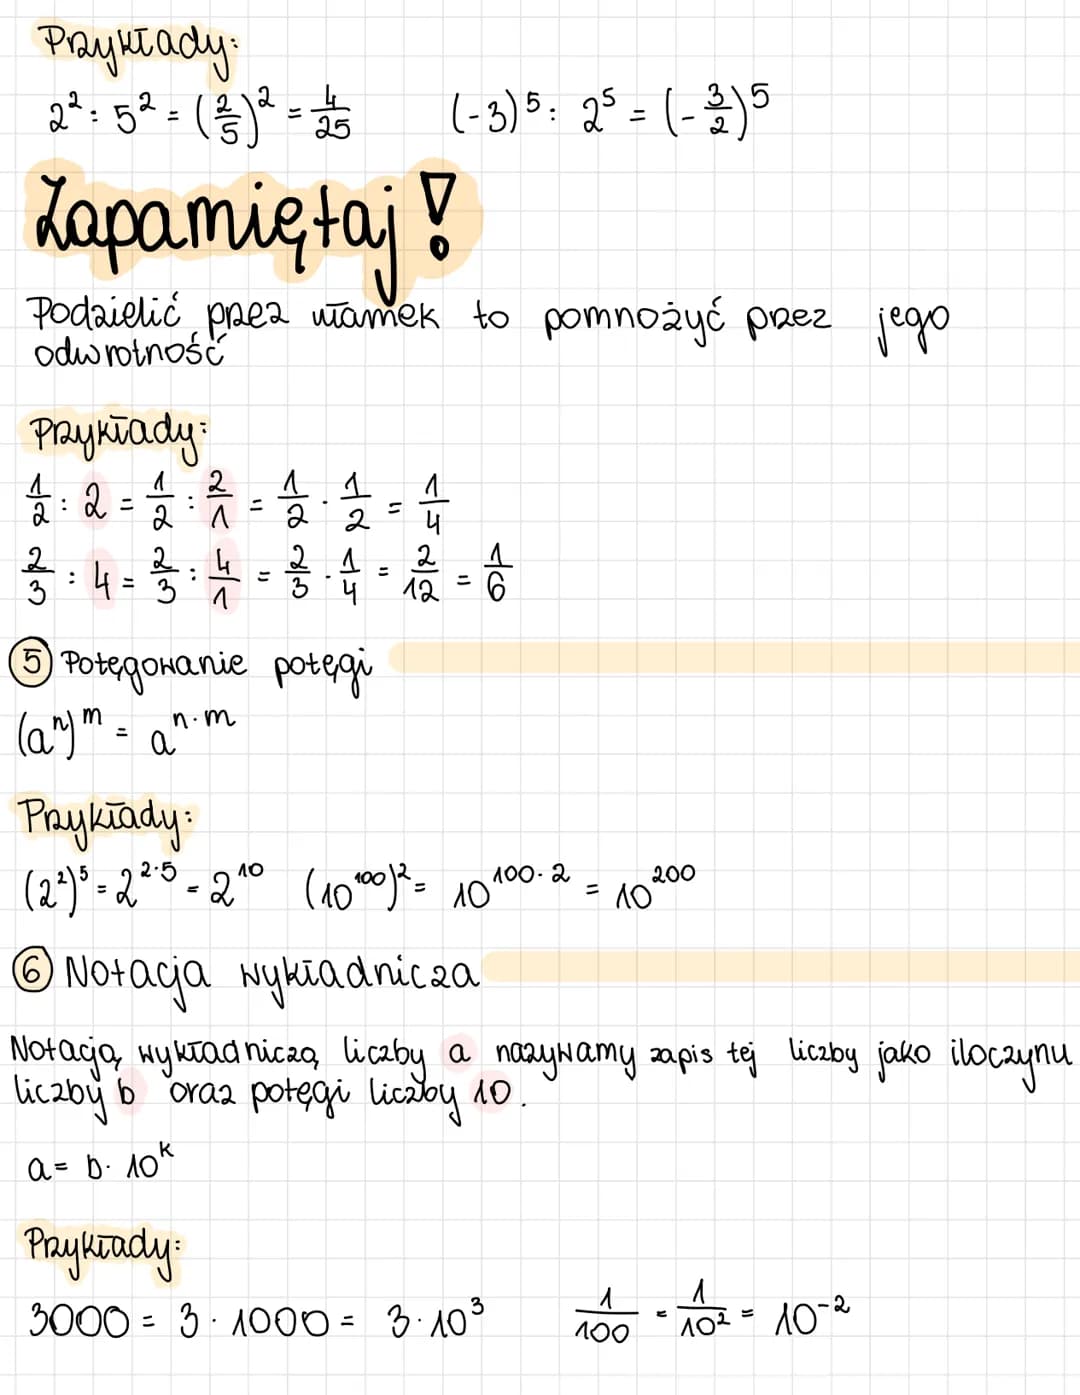 Przykłady:
2² : 5² = (2/5)² = 4/25    (-3)⁵ : 2⁵ = (-3/2)⁵
Zapamiętaj!
Podzielić przez ułamek to pomnożyć przez jego
odwrotność
Przykłady:
1/2 : 2 = 1/2 : 2/1 = 1/2 · 1/2 = 1/4
2/3 : 4 = 2/3 : 4/1 = 2/3 · 1/4 = 2/12 = 1/6
⑤ Potęgowanie potęgi
(aⁿ)ᵐ = aⁿ·ᵐ
Przykłady:
(2²)⁵ = 2²·⁵ = 2¹⁰    (10¹⁰⁰)² = 10¹⁰⁰·² = 10²⁰⁰
⑥ Notacja wykładnicza
Notacją wykładniczą liczby a nazywamy zapis tej liczby jako iloczynu
liczby b oraz potęgi liczby 10.
a = b · 10ᵏ
Przykłady:
3000 = 3 · 1000 = 3 · 10³    1/100 = 1/10² = 10⁻²